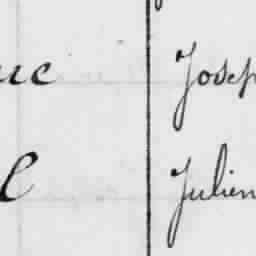 ue Josep
l Julien